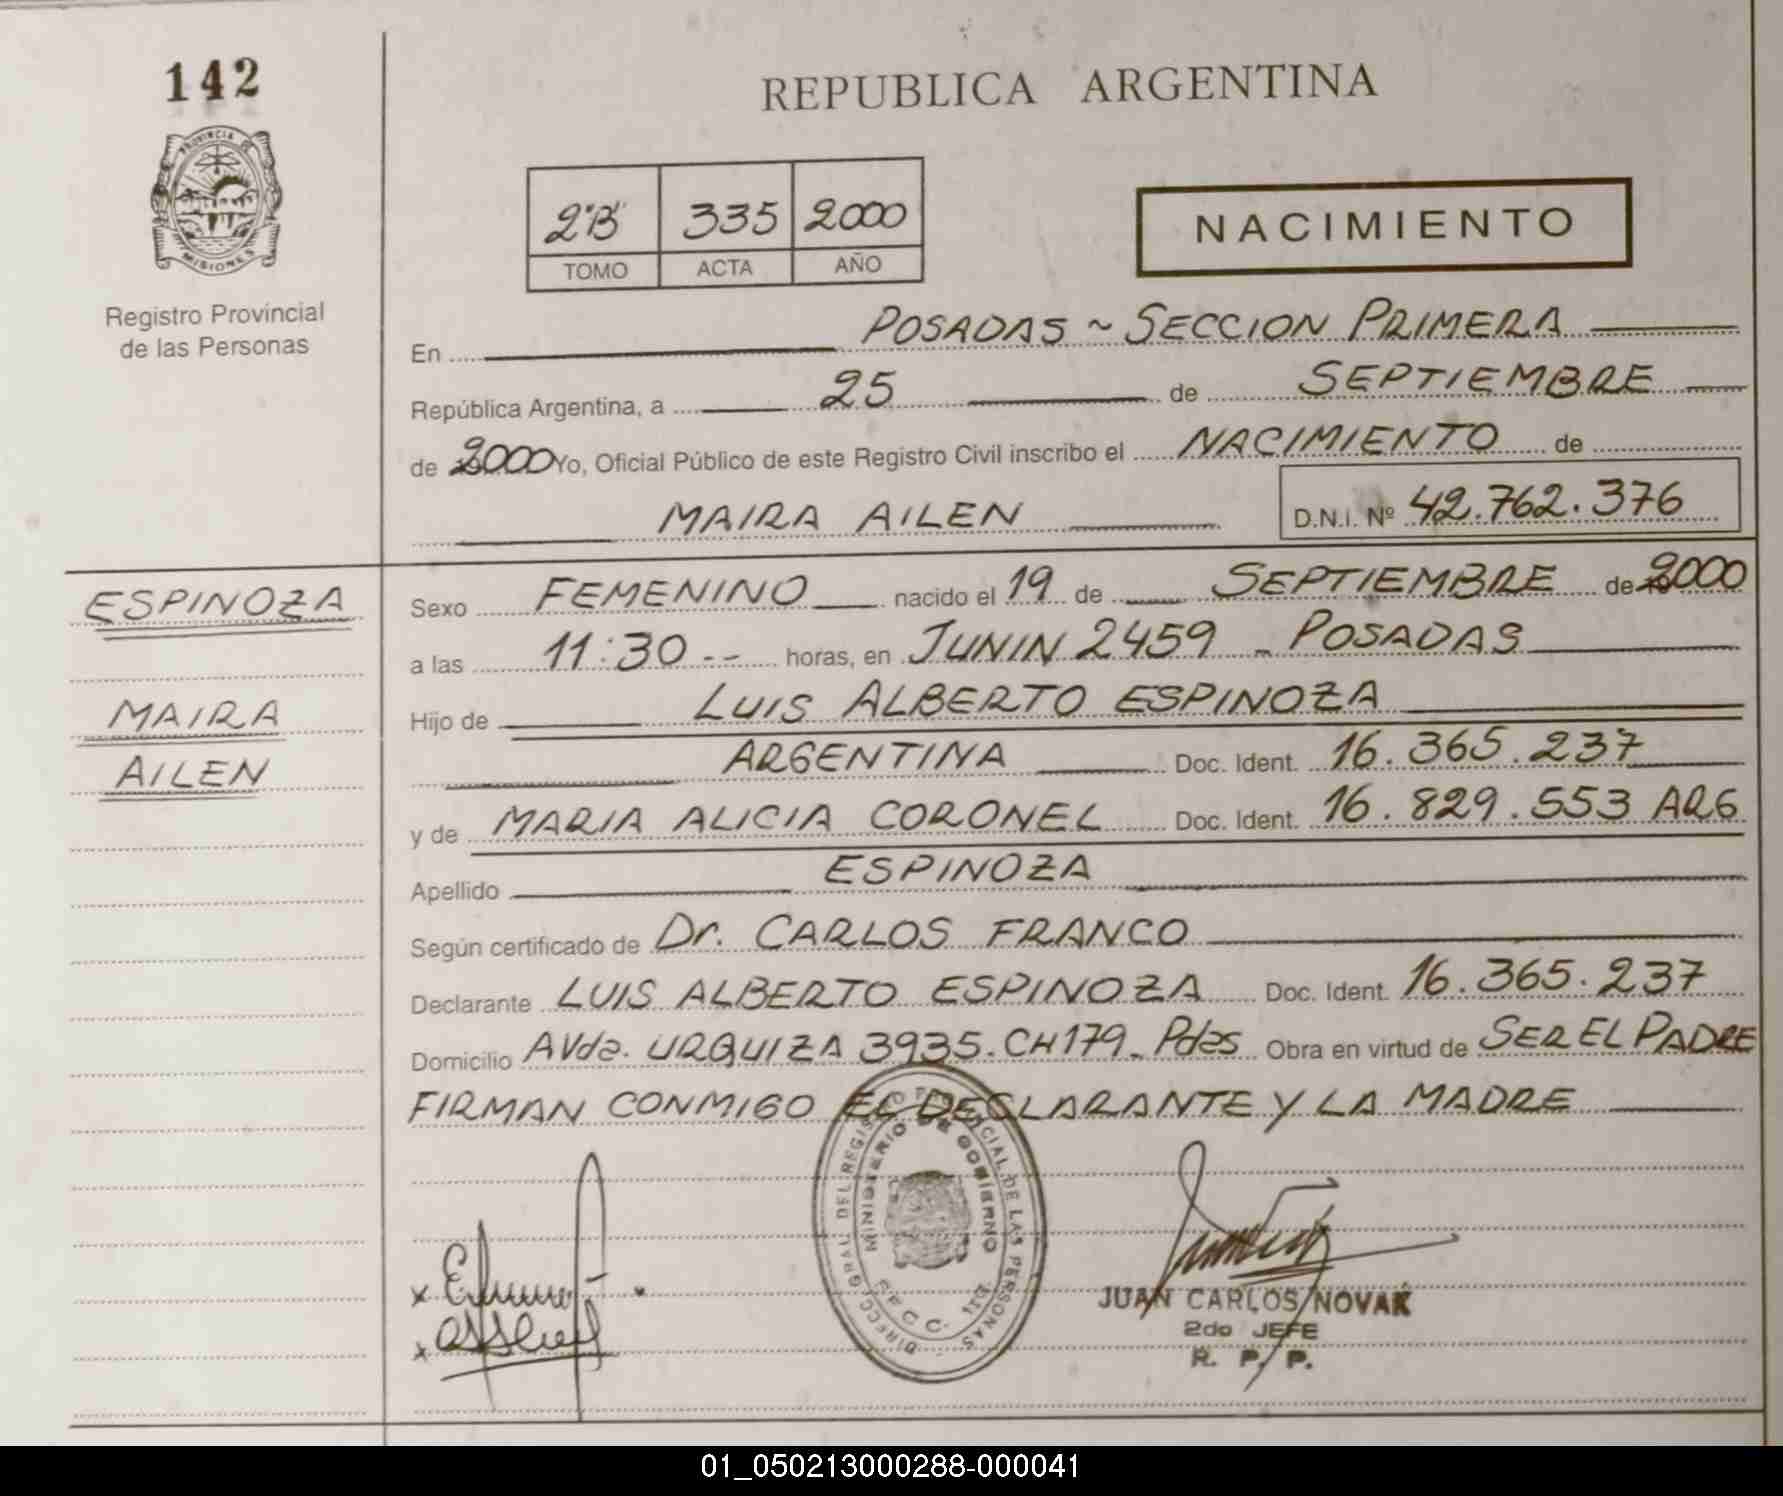 142
REPUBLICA ARGENTINA
PROVINCIA DE
MISIONES
Registro Provincial
de las Personas
2"B" 335 2000
TOMO ACTA AÑO
NACIMIENTO
En POSADAS ~ SECCION PRIMERA
República Argentina, a 25 de SEPTIEMBRE
de 2000 Yo, Oficial Público de este Registro Civil inscribo el NACIMIENTO de
MAIRA AILEN D.N.I. Nº 42.762.376
ESPINOZA
MAIRA
AILEN
Sexo FEMENINO nacido el 19 de SEPTIEMBRE de 2000
a las 11:30 -- horas, en JUNIN 2459 - POSADAS
Hijo de LUIS ALBERTO ESPINOZA
ARGENTINA Doc. Ident. 16.365.237
y de MARIA ALICIA CORONEL Doc. Ident. 16.829.553 ARG
Apellido ESPINOZA
Según certificado de Dr. CARLOS FRANCO
Declarante LUIS ALBERTO ESPINOZA Doc. Ident. 16.365.237
Domicilio AVda. URQUIZA 3935. CH179_ Pdas Obra en virtud de SER EL PADRE
FIRMAN CONMIGO EL DECLARANTE Y LA MADRE
DIRECC. GRAL DEL REGISTRO PROVINCIAL DE LAS PERSONAS
MINISTERIO DE GOBIERNO
JUAN CARLOS NOVAK
2do JEFE
R. P. P.
01_050213000288-000041